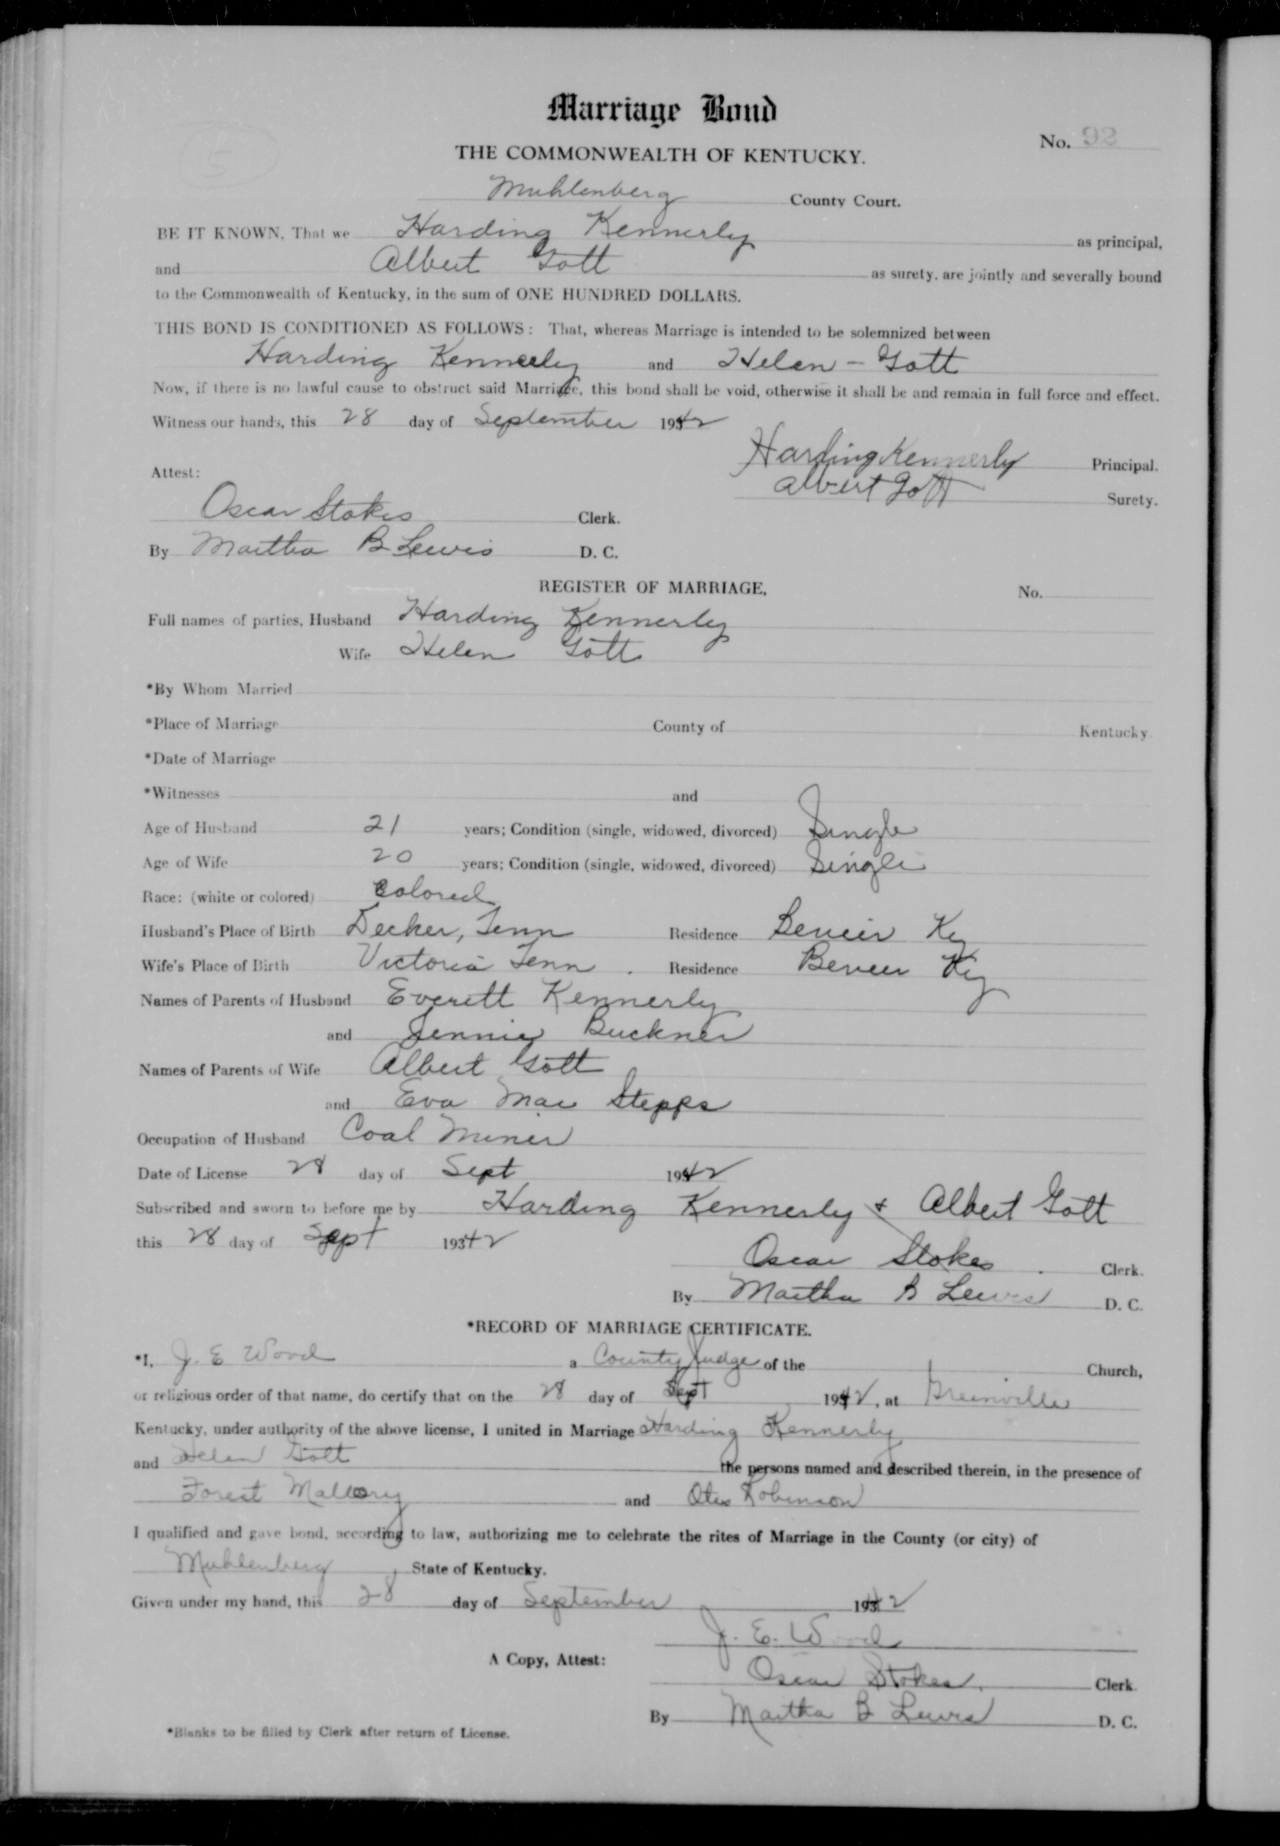 Marriage Bond
No. 92
5
THE COMMONWEALTH OF KENTUCKY.
Muhlenberg County Court.
BE IT KNOWN, That we Harding Kennerly as principal,
and Albert Gott as surety, are jointly and severally bound
to the Commonwealth of Kentucky, in the sum of ONE HUNDRED DOLLARS.
THIS BOND IS CONDITIONED AS FOLLOWS: That, whereas Marriage is intended to be solemnized between
Harding Kennerly and Helen - Gott
Now, if there is no lawful cause to obstruct said Marriage, this bond shall be void, otherwise it shall be and remain in full force and effect.
Witness our hands, this 28 day of September 1942
Harding Kennerly Principal.
Attest:
Albert Gott Surety.
Oscar Stokes Clerk.
By Martha B Lewis D. C.
REGISTER OF MARRIAGE, No.
Full names of parties, Husband Harding Kennerly
Wife Helen Gott
*By Whom Married
*Place of Marriage County of Kentucky
*Date of Marriage
*Witnesses and
Age of Husband 21 years; Condition (single, widowed, divorced) Single
Age of Wife 20 years; Condition (single, widowed, divorced) Single
Race: (white or colored) Colored
Husband's Place of Birth Decker, Tenn Residence Bevier Ky
Wife's Place of Birth Victoria Tenn. Residence Bevier Ky
Names of Parents of Husband Everett Kennerly
and Jennie Buckner
Names of Parents of Wife Albert Gott
and Eva Mae Stepps
Occupation of Husband Coal Miner
Date of License 28 day of Sept 1942
Subscribed and sworn to before me by Harding Kennerly & Albert Gott
this 28 day of Sept 19342
Oscar Stokes. Clerk.
By Martha B Lewis D. C.
*RECORD OF MARRIAGE CERTIFICATE.
*I, J. E Wood a County Judge of the Church,
or religious order of that name, do certify that on the 28 day of Sept 1942, at Greenville
Kentucky, under authority of the above license, I united in Marriage Harding Kennerly
and Helen Gott the persons named and described therein, in the presence of
Forest Mallory and Otis Robinson
I qualified and gave bond, according to law, authorizing me to celebrate the rites of Marriage in the County (or city) of
Muhlenberg, State of Kentucky.
Given under my hand, this 28 day of September 1942
J. E. Wood
A Copy, Attest:
Oscar Stokes. Clerk.
By Martha B Lewis D. C.
*Blanks to be filled by Clerk after return of License.